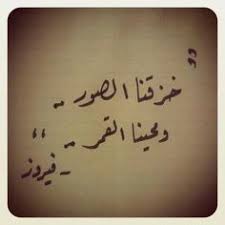 " خزقنا الصور ..
ومحينا القمر .. "
- فيروز